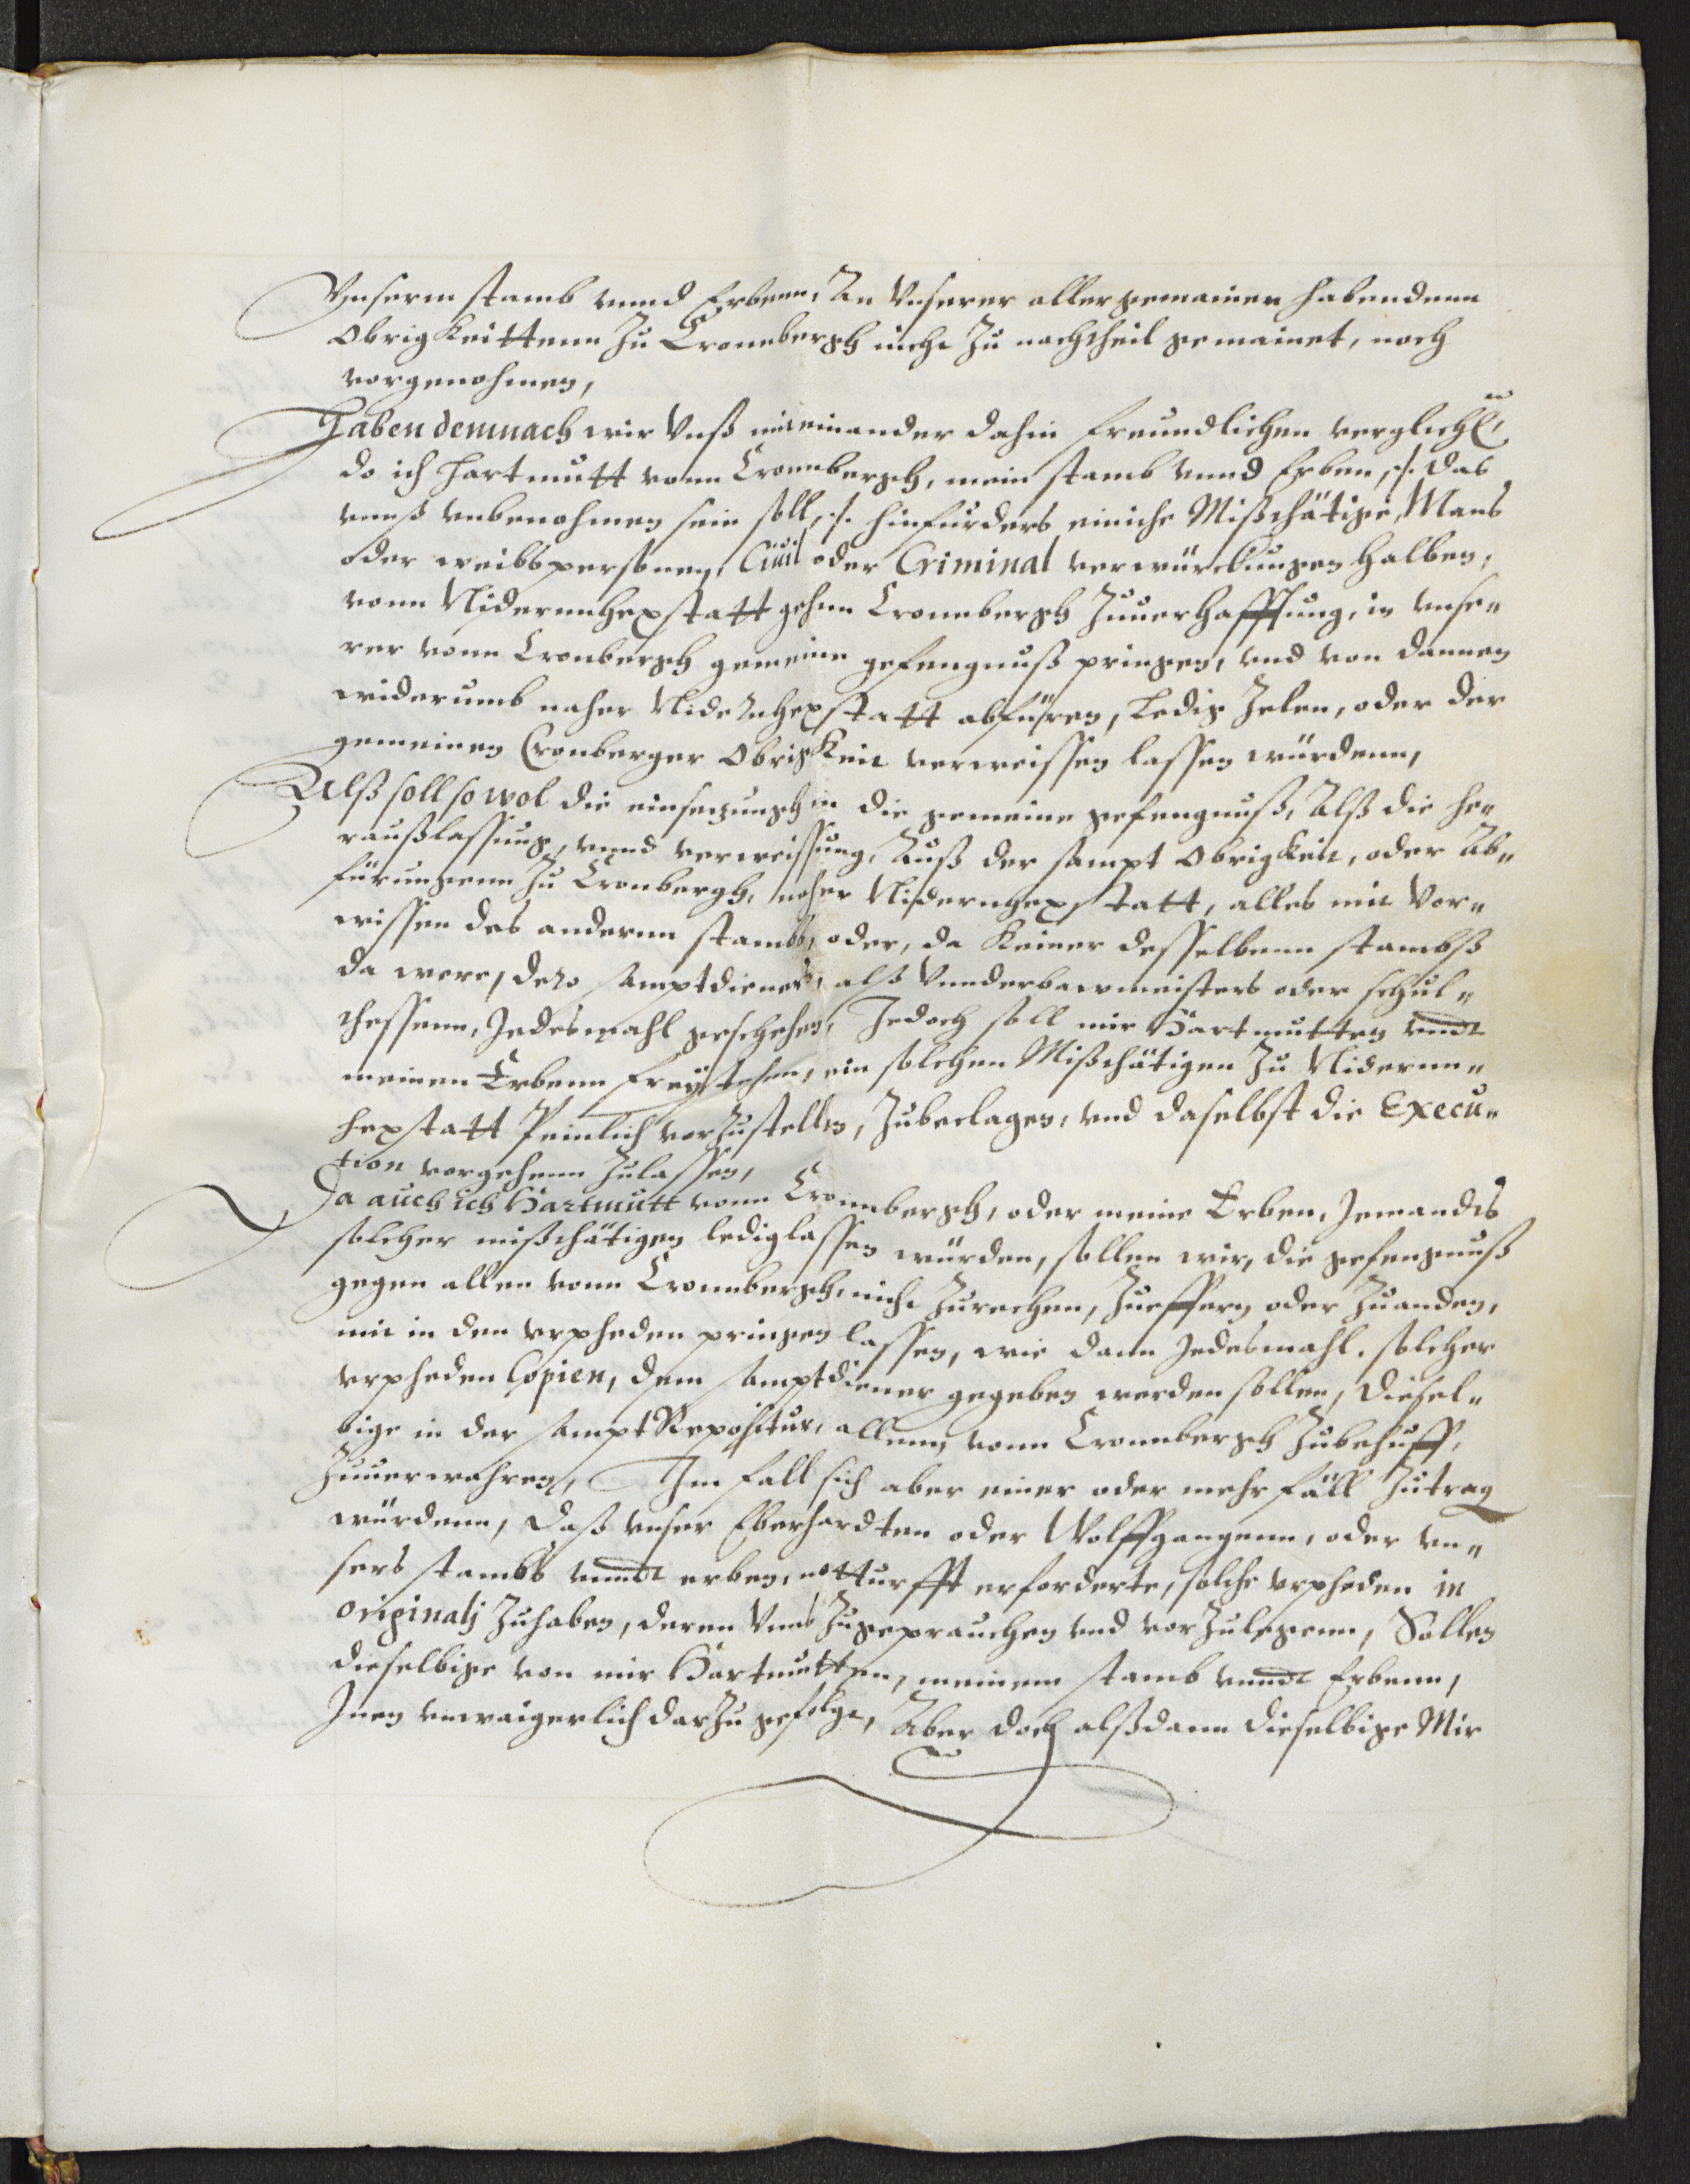 Vnserm stamb vnnd Erbenn, An Vnserer aller gemainen habendenn
Obrigkeittenn Zu Cronnbergh nicht Zu nachtheil gemainet, noch
vorgenohmen,
Haben demnach wir Vnß miteinander dahin freundlichen verglichen,
do ich Hartmutt vonn Cronnbergh, mein stamb vnnd Erben, ./. das
vnnß vnbenohmen sein soll, ./. hinfürders einiche Mißthätige, Mans
oder weibspersonen, Ciuil oder Criminal verwürckungen halben,
vonn Nidernnhexstatt gehnn Cronnbergh Zuuerhafftung, in vnse„
rer vonn Cronbergh gemeine gefengnuß pringen, vnd von dannen
widerumb naher Nidernhexstatt abführen, Ledig Zelen, oder der
gemeinen Cronberger Obrigkeit verweissen lassen würdenn,
Alß soll so wol die einsetzungh in die gemeine gefengnuß, Alß die he„
raußlassung, vnnd verweissung, Auß der sampt Obrigkeit, oder Ab„
fürungenn Zu Cronbergh, naher Nidernhexstatt, alles mit Vor„
wissen des anderen stambs, oder, da Keiner desselbenn stambß
da were, dero samptdieners, alß Vnnderbawmeisters oder schul„
thessenn, Jedesmahl geschehen, Jedoch soll mir Hartmutten vnndt
meinen Erbenn frey stehen, ein solchen Mißthätigen Zu Nidernn„
hexstatt Peinlich vorzustellen, Zubeclagen, vnd daselbst die Execu„
tion vorgehenn Zulassen,
Da auch ich Hartmutt vonn Cronnbergh, oder meine Erben, Jemandts
solcher mißthätigen lediglassen würden, sollen wir, die gefengnuß
gegen allen vonn Cronnbergh, nicht Zurechen, Zueffern oder Zuanden,
mit in den vrpheden pringen lassen, wie dann Jedesmahl. solcher
vrpheden Copien, dem samptdiener gegeben werden sollen, diesel„
bige in der sampt Repositur, allenn vonn Cronnbergh Zubehuff,
Zuuerwahren, Im fall sich aber einer oder mehr fäll Zutrag
würdenn, daß vnser Eberhardten oder Wolffgangenn, oder vn„
sers stambs vnndt erben, notturfft erforderte, solche vrpheden in
originalj Zuhaben, deren Vnns Zugeprauchen vnd vorzulegenn, Sollen
dieselbige von mir Hartmutten, meinem stamb vnndt Erbenn,
Inen vnwaigerlich darzu gefolgt, Aber doch alßdann dieselbige Mir